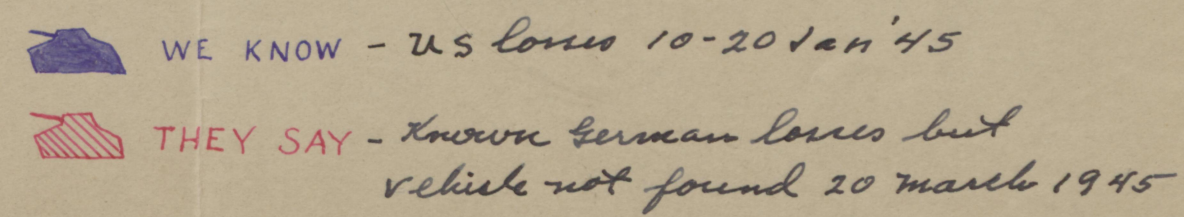 WE KNOW - US losses 10-20 Jan '45
THEY SAY - Known German losses but
vehicle not found 20 March 1945